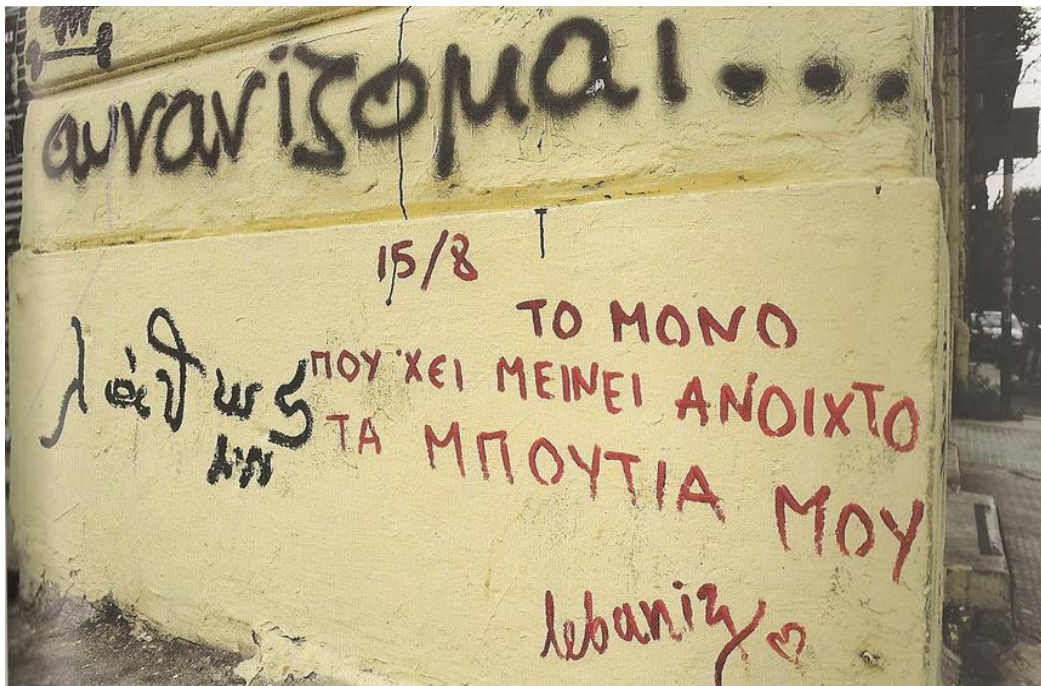 αυνανίζομαι...
15/8
ΤΟ ΜΟΝΟ
ΠΟΥ 'ΧΕΙ ΜΕΙΝΕΙ ΑΝΟΙΧΤΟ
ΤΑ ΜΠΟΥΤΙΑ ΜΟΥ
λάθως
lebaniz